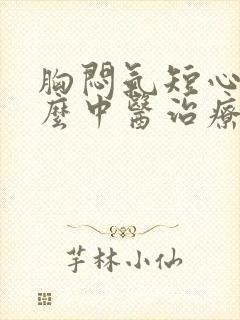 胸悶氣短心
麼中醫治療
芋林小仙